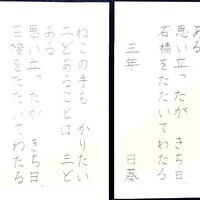 ある
思い立ったが きち日
石橋をたたいてわたる
三年 日葵
ねこの手も かりたい
二どあることは 三ど
ある
思い立ったが きち日
石橋をたたいてわたる